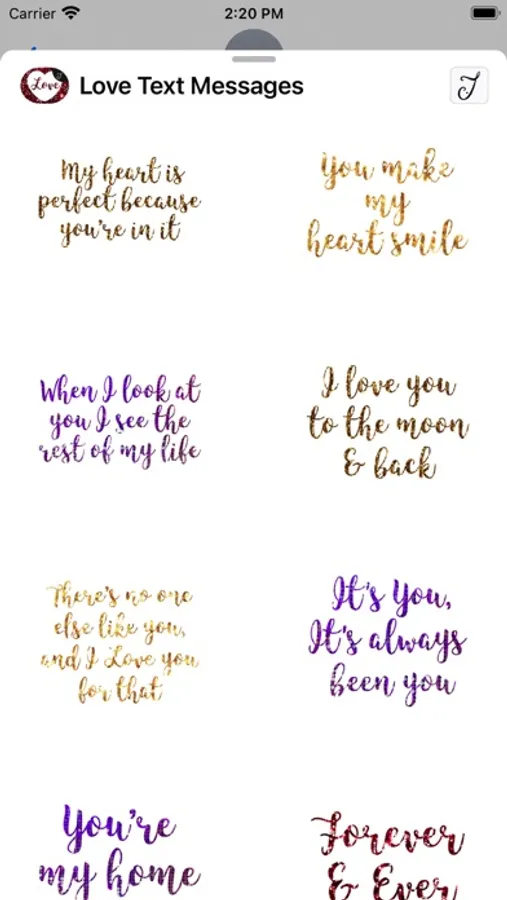 Carrier 2:20 PM
Love
Love Text Messages
My heart is
perfect because
you're in it
You make
my
heart smile
When I look at
you I see the
rest of my life
I love you
to the moon
& back
There's no one
else like you,
and I Love you
for that
It's You,
It's always
been you
You're
my home
Forever
& Ever